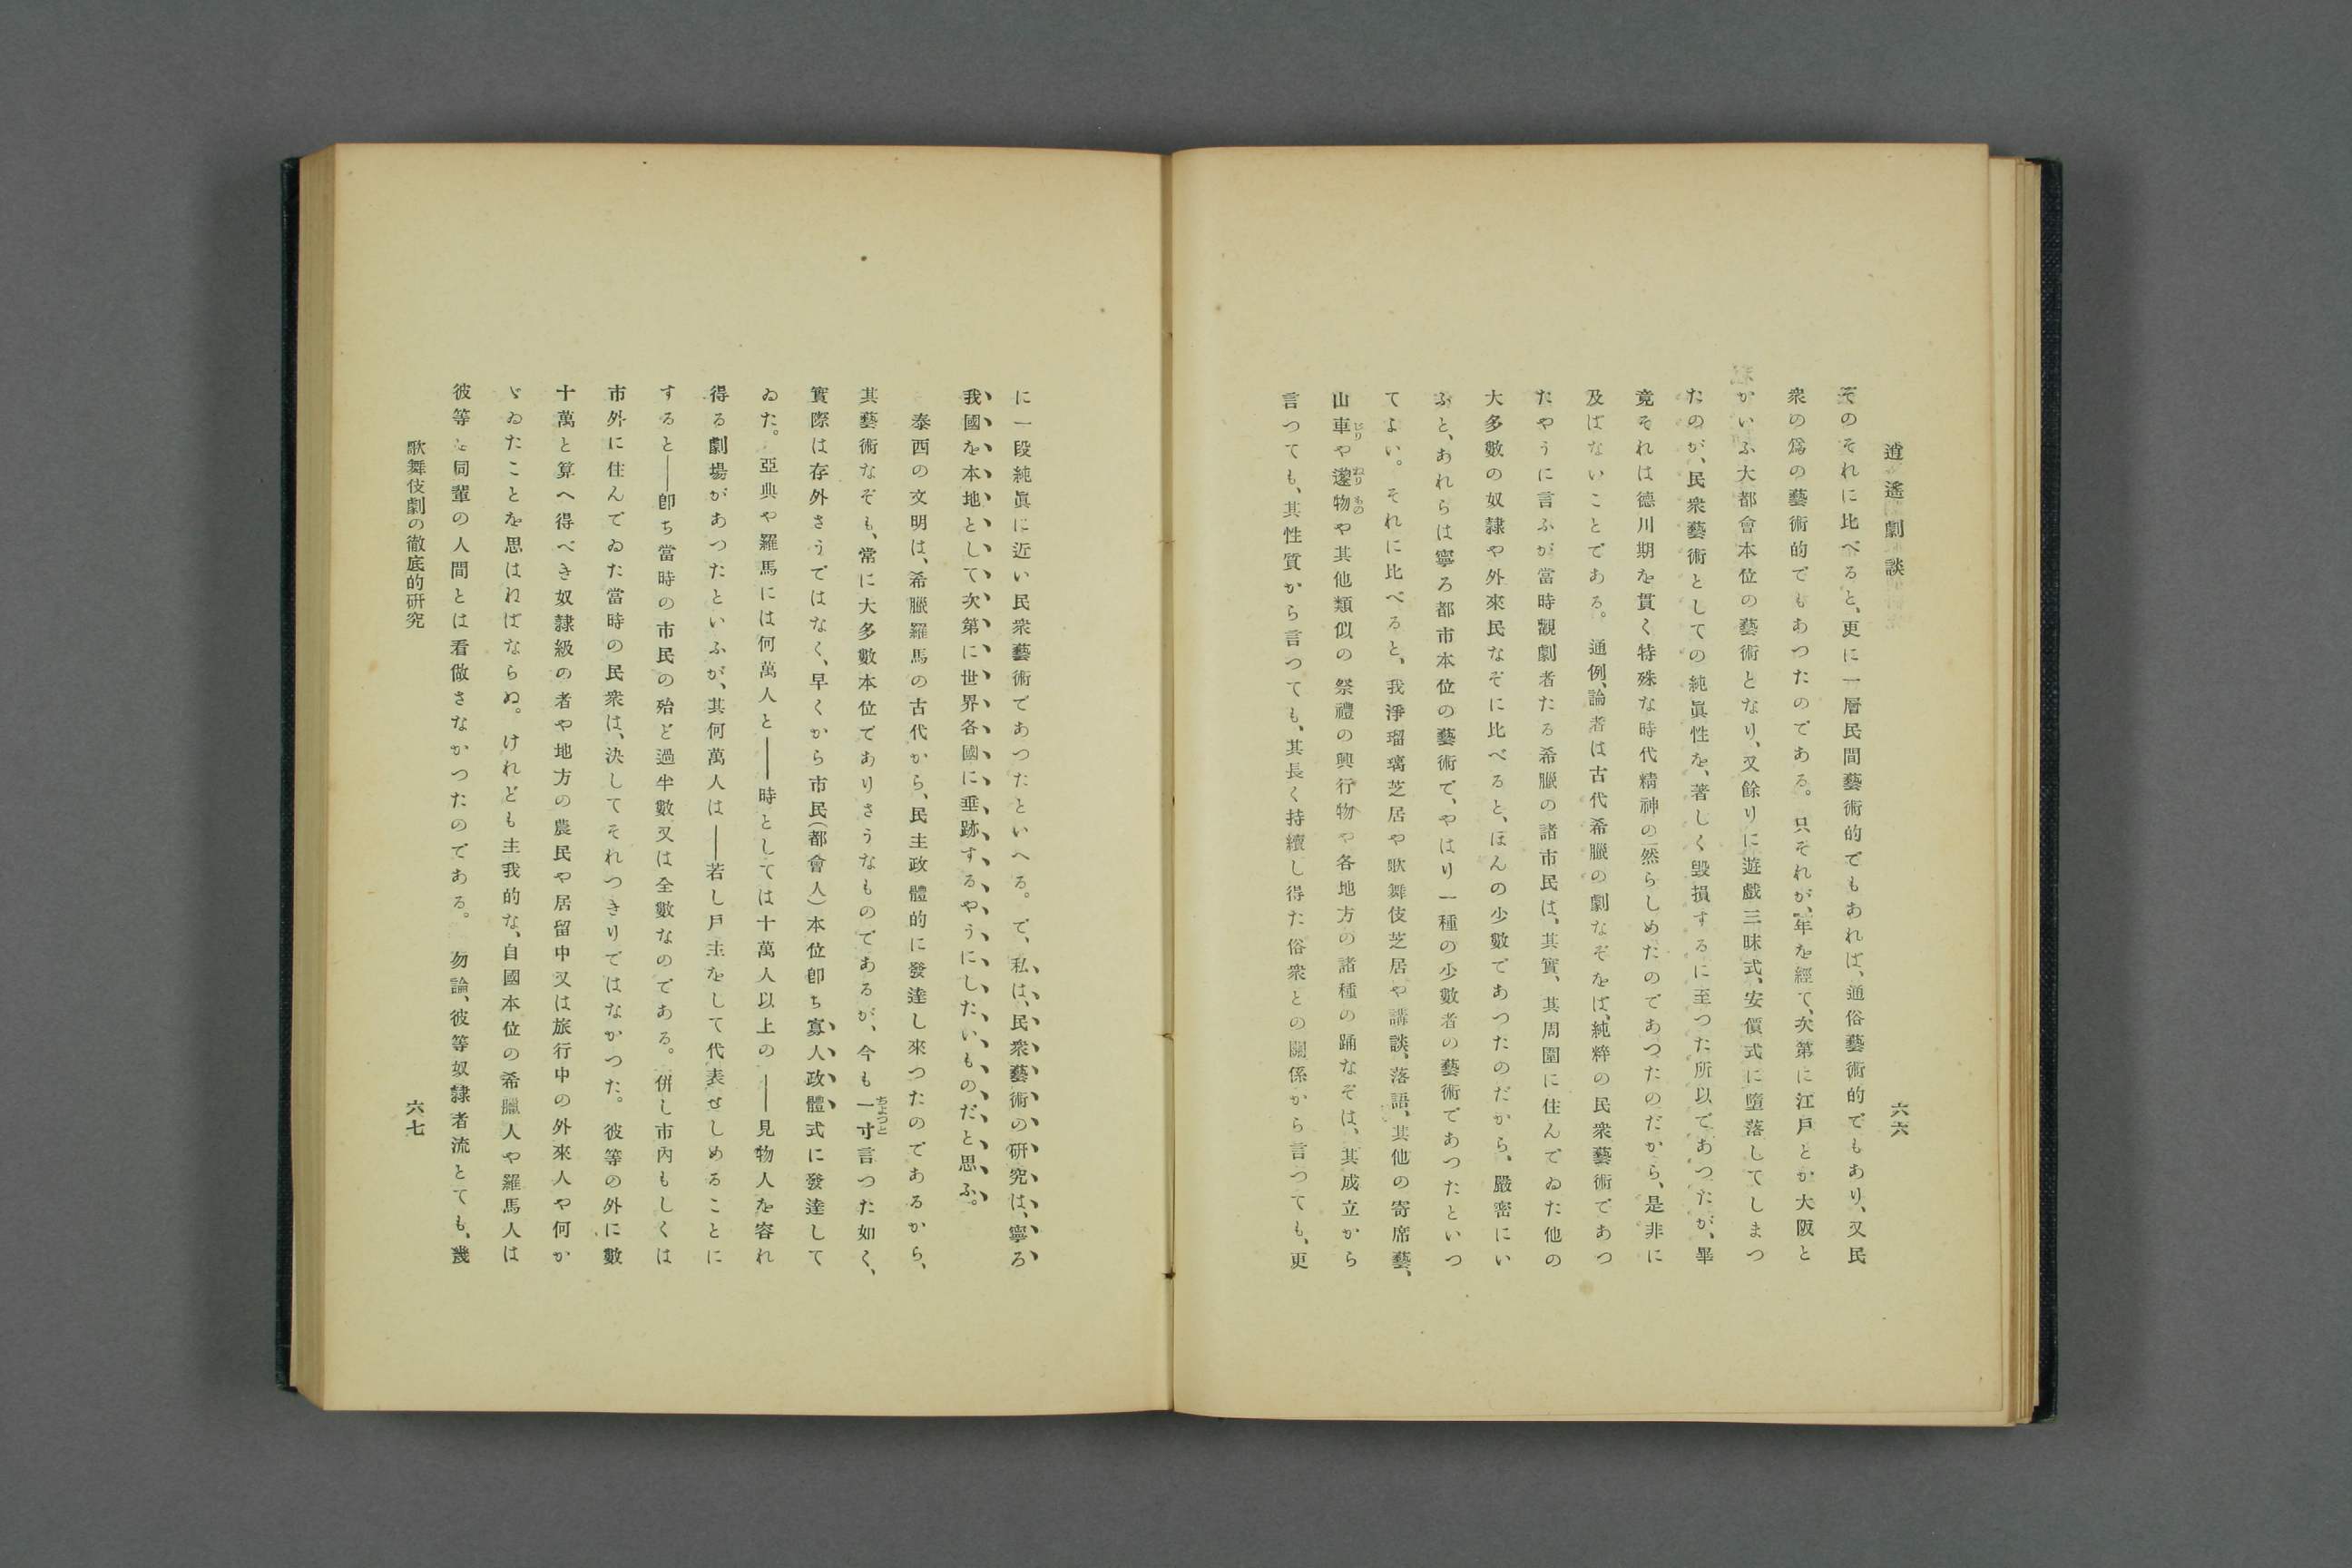 逍遙劇談
六六
そのそれに比べると、更に一層民間藝術的でもあれば、通俗藝術的でもあり、又民
衆の爲の藝術的でもあつたのである。只それが、年を經て、次第に江戸とか大阪と
かいふ大都會本位の藝術となり、又餘りに遊戲三昧式、安價式に墮落してしまつ
たのが、民衆藝術としての純眞性を、著しく毀損するに至つた所以であつたが、畢
竟それは德川期を貫く特殊な時代精神の然らしめたのであつたのだから、是非に
及ばないことである。通例、論者は古代希臘の劇なぞをば、純粹の民衆藝術であつ
たやうに言ふが當時觀劇者たる希臘の諸市民は、其實、其周圍に住んでゐた他の
大多數の奴隷や外來民なぞに比べると、ほんの少數であつたのだから、嚴密にい
ふと、あれらは寧ろ都市本位の藝術で、やはり一種の少數者の藝術であつたといつ
てよい。それに比べると、我淨瑠璃芝居や歌舞伎芝居や講談、落語、其他の寄席藝、
山車や邌物や其他類似の祭禮の興行物や各地方の諸種の踊なぞは、其成立から
言つても、其性質から言つても、其長く持續し得た俗衆との關係から言つても、更
に一段純眞に近い民衆藝術であつたといへる。で、私は、民衆藝術の研究は、寧ろ
我國を本地として次第に世界各國に垂跡するやうにしたいものだと思ふ。
泰西の文明は、希臘羅馬の古代から、民主政體的に發達し來つたのであるから、
其藝術なぞも、常に大多數本位でありさうなものであるが、今も一寸言つた如く、
實際は存外さうではなく、早くから市民(都會人)本位卽ち寡人政體式に發達して
ゐた。亞典や羅馬には何萬人と――時としては十萬人以上の――見物人を容れ
得る劇場があつたといふが、其何萬人は――若し戸主をして代表せしめることに
すると――卽ち當時の市民の殆ど過半數又は全數なのである。併し市內もしくは
市外に住んでゐた當時の民衆は、決してそれつきりではなかつた。彼等の外に數
十萬と算へ得べき奴隷級の者や地方の農民や居留中又は旅行中の外來人や何か
ゞゐたことを思はねばならぬ。けれども主我的な、自國本位の希臘人や羅馬人は
彼等を同輩の人間とは看做さなかつたのである。勿論、彼等奴隷者流とても、幾
歌舞伎劇の徹底的研究
六七